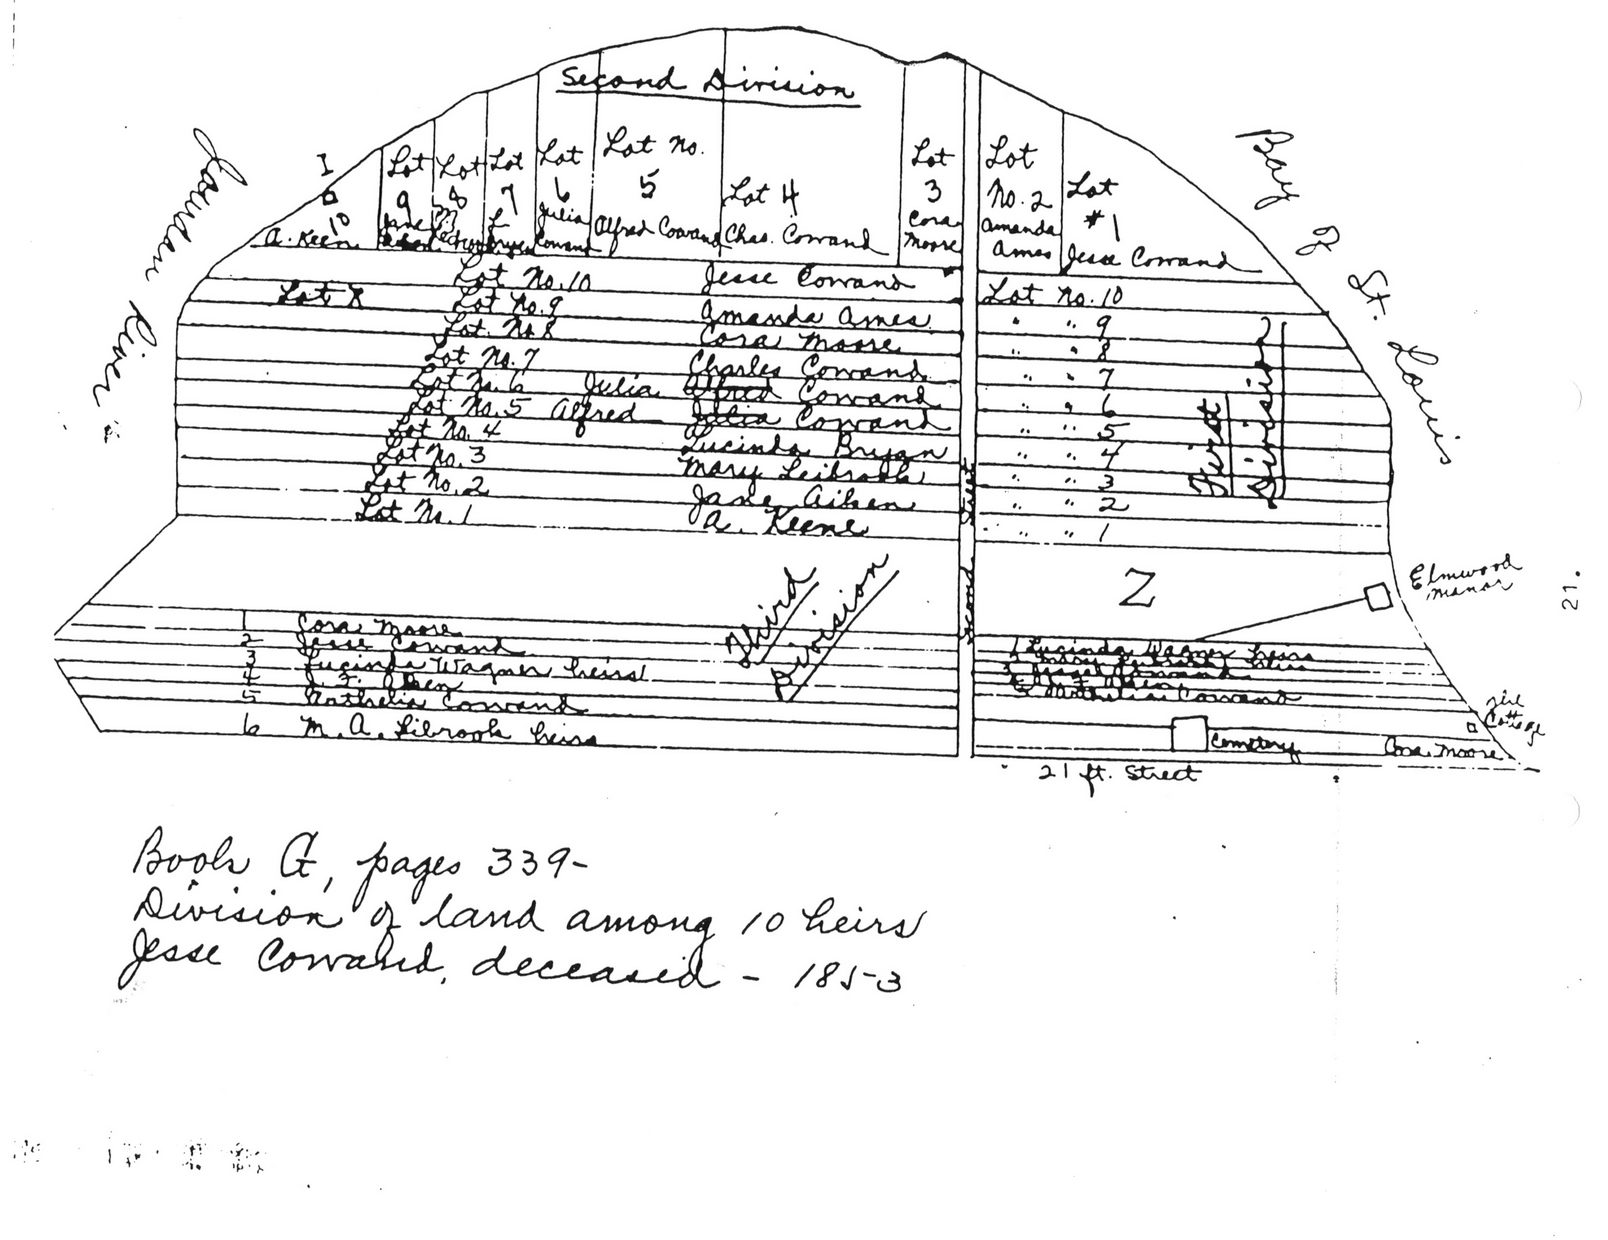 Second Division
Jourdan River
Bay of St. Louis
I
10
A. Keen
Lot
9
Jane
Lot
8
M
Lot
7
L
Bryan
Lot
6
Julia
Cowand
Lot No.
5
Alfred Cowand
Lot 4
Chas. Cowand
Lot
3
Cora
Moore
Lot
No. 2
Amanda
Ames
Lot
#1
Jesse Cowand
Lot X
Lot No. 10 Jesse Cowand
Lot No. 9 Amanda Ames
Lot No. 8 Cora Moore
Lot No. 7 Charles Cowand
Lot No. 6 Julia Alfred Cowand
Lot No. 5 Alfred Julia Cowand
Lot No. 4 Lucinda Bryan
Lot No. 3 Mary Leibrook
Lot No. 2 Jane Aiken
Lot No. 1 A. Keene
Lot No. 10
" " 9
" " 8
" " 7
" " 6
" " 5
" " 4
" " 3
" " 2
" " 1
First
Division
Second Street
Z
Elmwood
Manor
Third
Division
1 Cora Moore
2 Jesse Cowand
3 Lucinda Wagner heirs
4
5 Cowand
6 M. A. Librook heirs
1 Lucinda Wagner heirs
Cowand
Cottage
Cemetery
Cora Moore
21 ft. Street
21.
Book G, pages 339-
Division of land among 10 heirs
Jesse Cowand, deceased - 1853